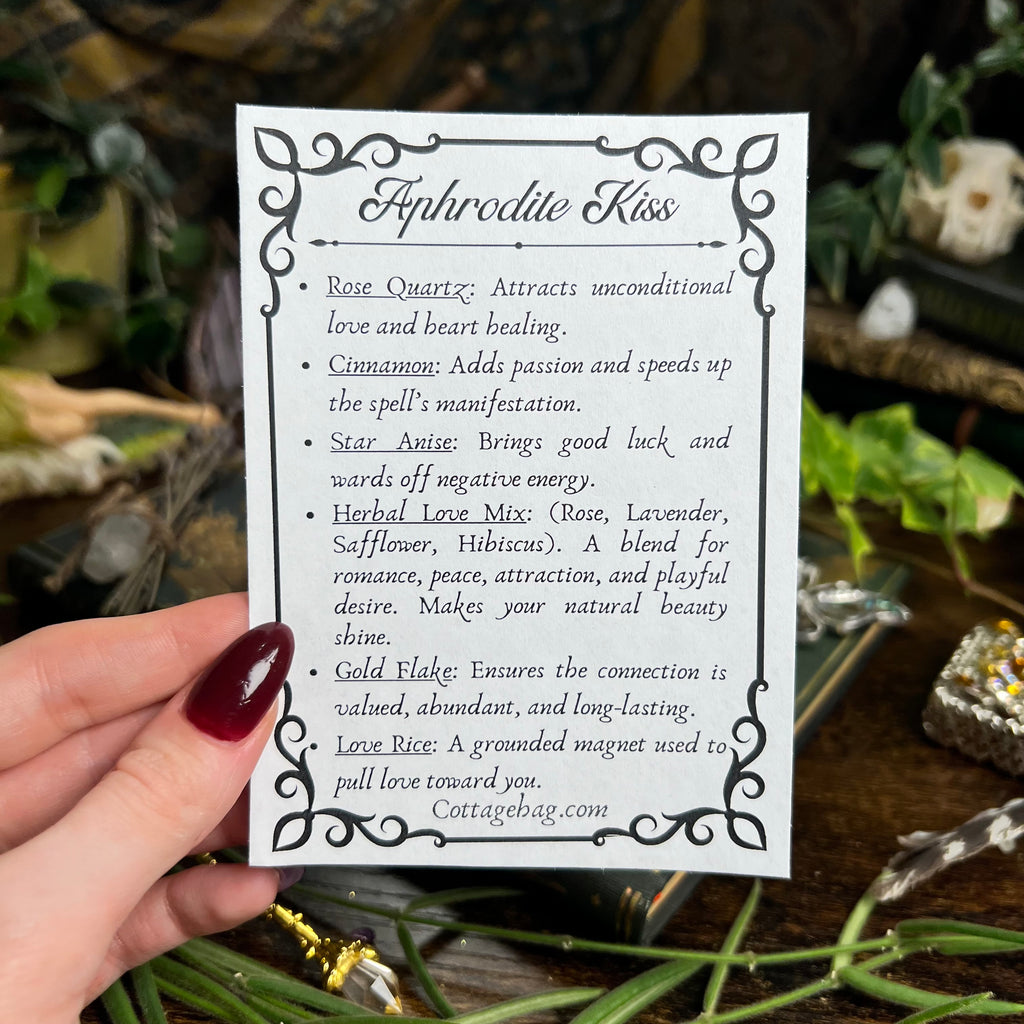 Aphrodite Kiss
• Rose Quartz: Attracts unconditional
love and heart healing.
• Cinnamon: Adds passion and speeds up
the spell's manifestation.
• Star Anise: Brings good luck and
wards off negative energy.
• Herbal Love Mix: (Rose, Lavender,
Safflower, Hibiscus). A blend for
romance, peace, attraction, and playful
desire. Makes your natural beauty
shine.
• Gold Flake: Ensures the connection is
valued, abundant, and long-lasting.
• Love Rice: A grounded magnet used to
pull love toward you.
Cottagebag.com